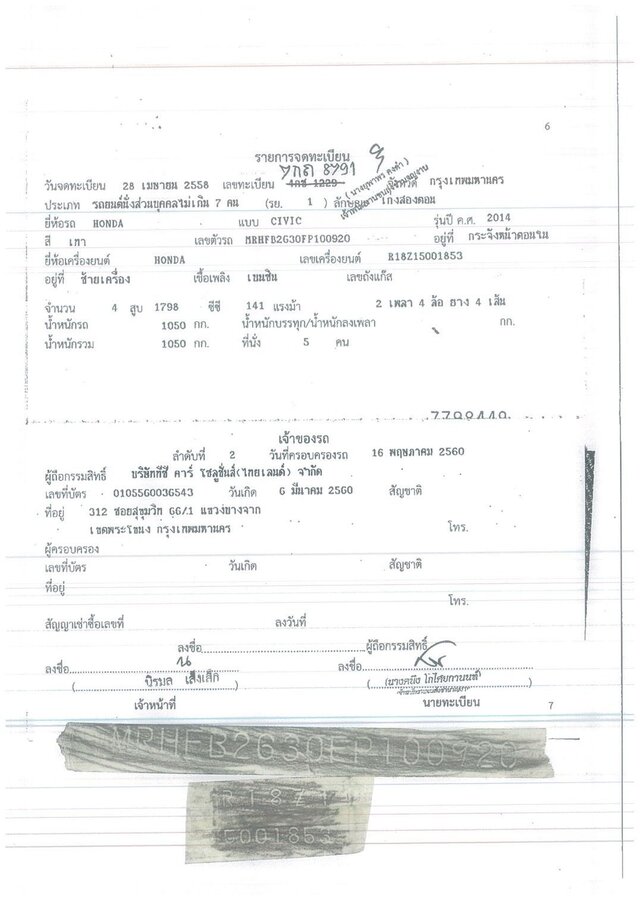 6
รายการจดทะเบียน
7กถ 8791
วันจดทะเบียน 28 เมษายน 2558 เลขทะเบียน 4กช 1229 จังหวัด กรุงเทพมหานคร
ประเภท รถยนต์นั่งส่วนบุคคลไม่เกิน 7 คน (รย. 1 ) ลักษณะ เก๋งสองตอน
ยี่ห้อรถ HONDA แบบ CIVIC รุ่นปี ค.ศ. 2014
สี เทา เลขตัวรถ MRHFB2630FP100920 อยู่ที่ กระจังหน้าตอนใน
ยี่ห้อเครื่องยนต์ HONDA เลขเครื่องยนต์ R18Z15001853
อยู่ที่ ซ้ายเครื่อง เชื้อเพลิง เบนซิน เลขถังแก๊ส
จำนวน 4 สูบ 1798 ซีซี 141 แรงม้า 2 เพลา 4 ล้อ ยาง 4 เส้น
น้ำหนักรถ 1050 กก. น้ำหนักบรรทุก/น้ำหนักลงเพลา กก.
น้ำหนักรวม 1050 กก. ที่นั่ง 5 คน
7798449
เจ้าของรถ
ลำดับที่ 2 วันที่ครอบครองรถ 16 พฤษภาคม 2560
ผู้ถือกรรมสิทธิ์ บริษัททีซี คาร์ โซลูชั่นส์(ไทยแลนด์) จำกัด
เลขที่บัตร 0105560036543 วันเกิด 6 มีนาคม 2560 สัญชาติ
ที่อยู่ 312 ซอยสุขุมวิท 66/1 แขวงบางจาก
เขตพระโขนง กรุงเทพมหานคร โทร.
ผู้ครอบครอง
เลขที่บัตร วันเกิด สัญชาติ
ที่อยู่
โทร.
สัญญาเช่าซื้อเลขที่ ลงวันที่
ลงชื่อ ผู้ถือกรรมสิทธิ์
ลงชื่อ ลงชื่อ
( นิรมล เส็งเล็ก ) ( )
เจ้าหน้าที่ นายทะเบียน 7
MRHFB2630FP100920
R18Z1
5001853